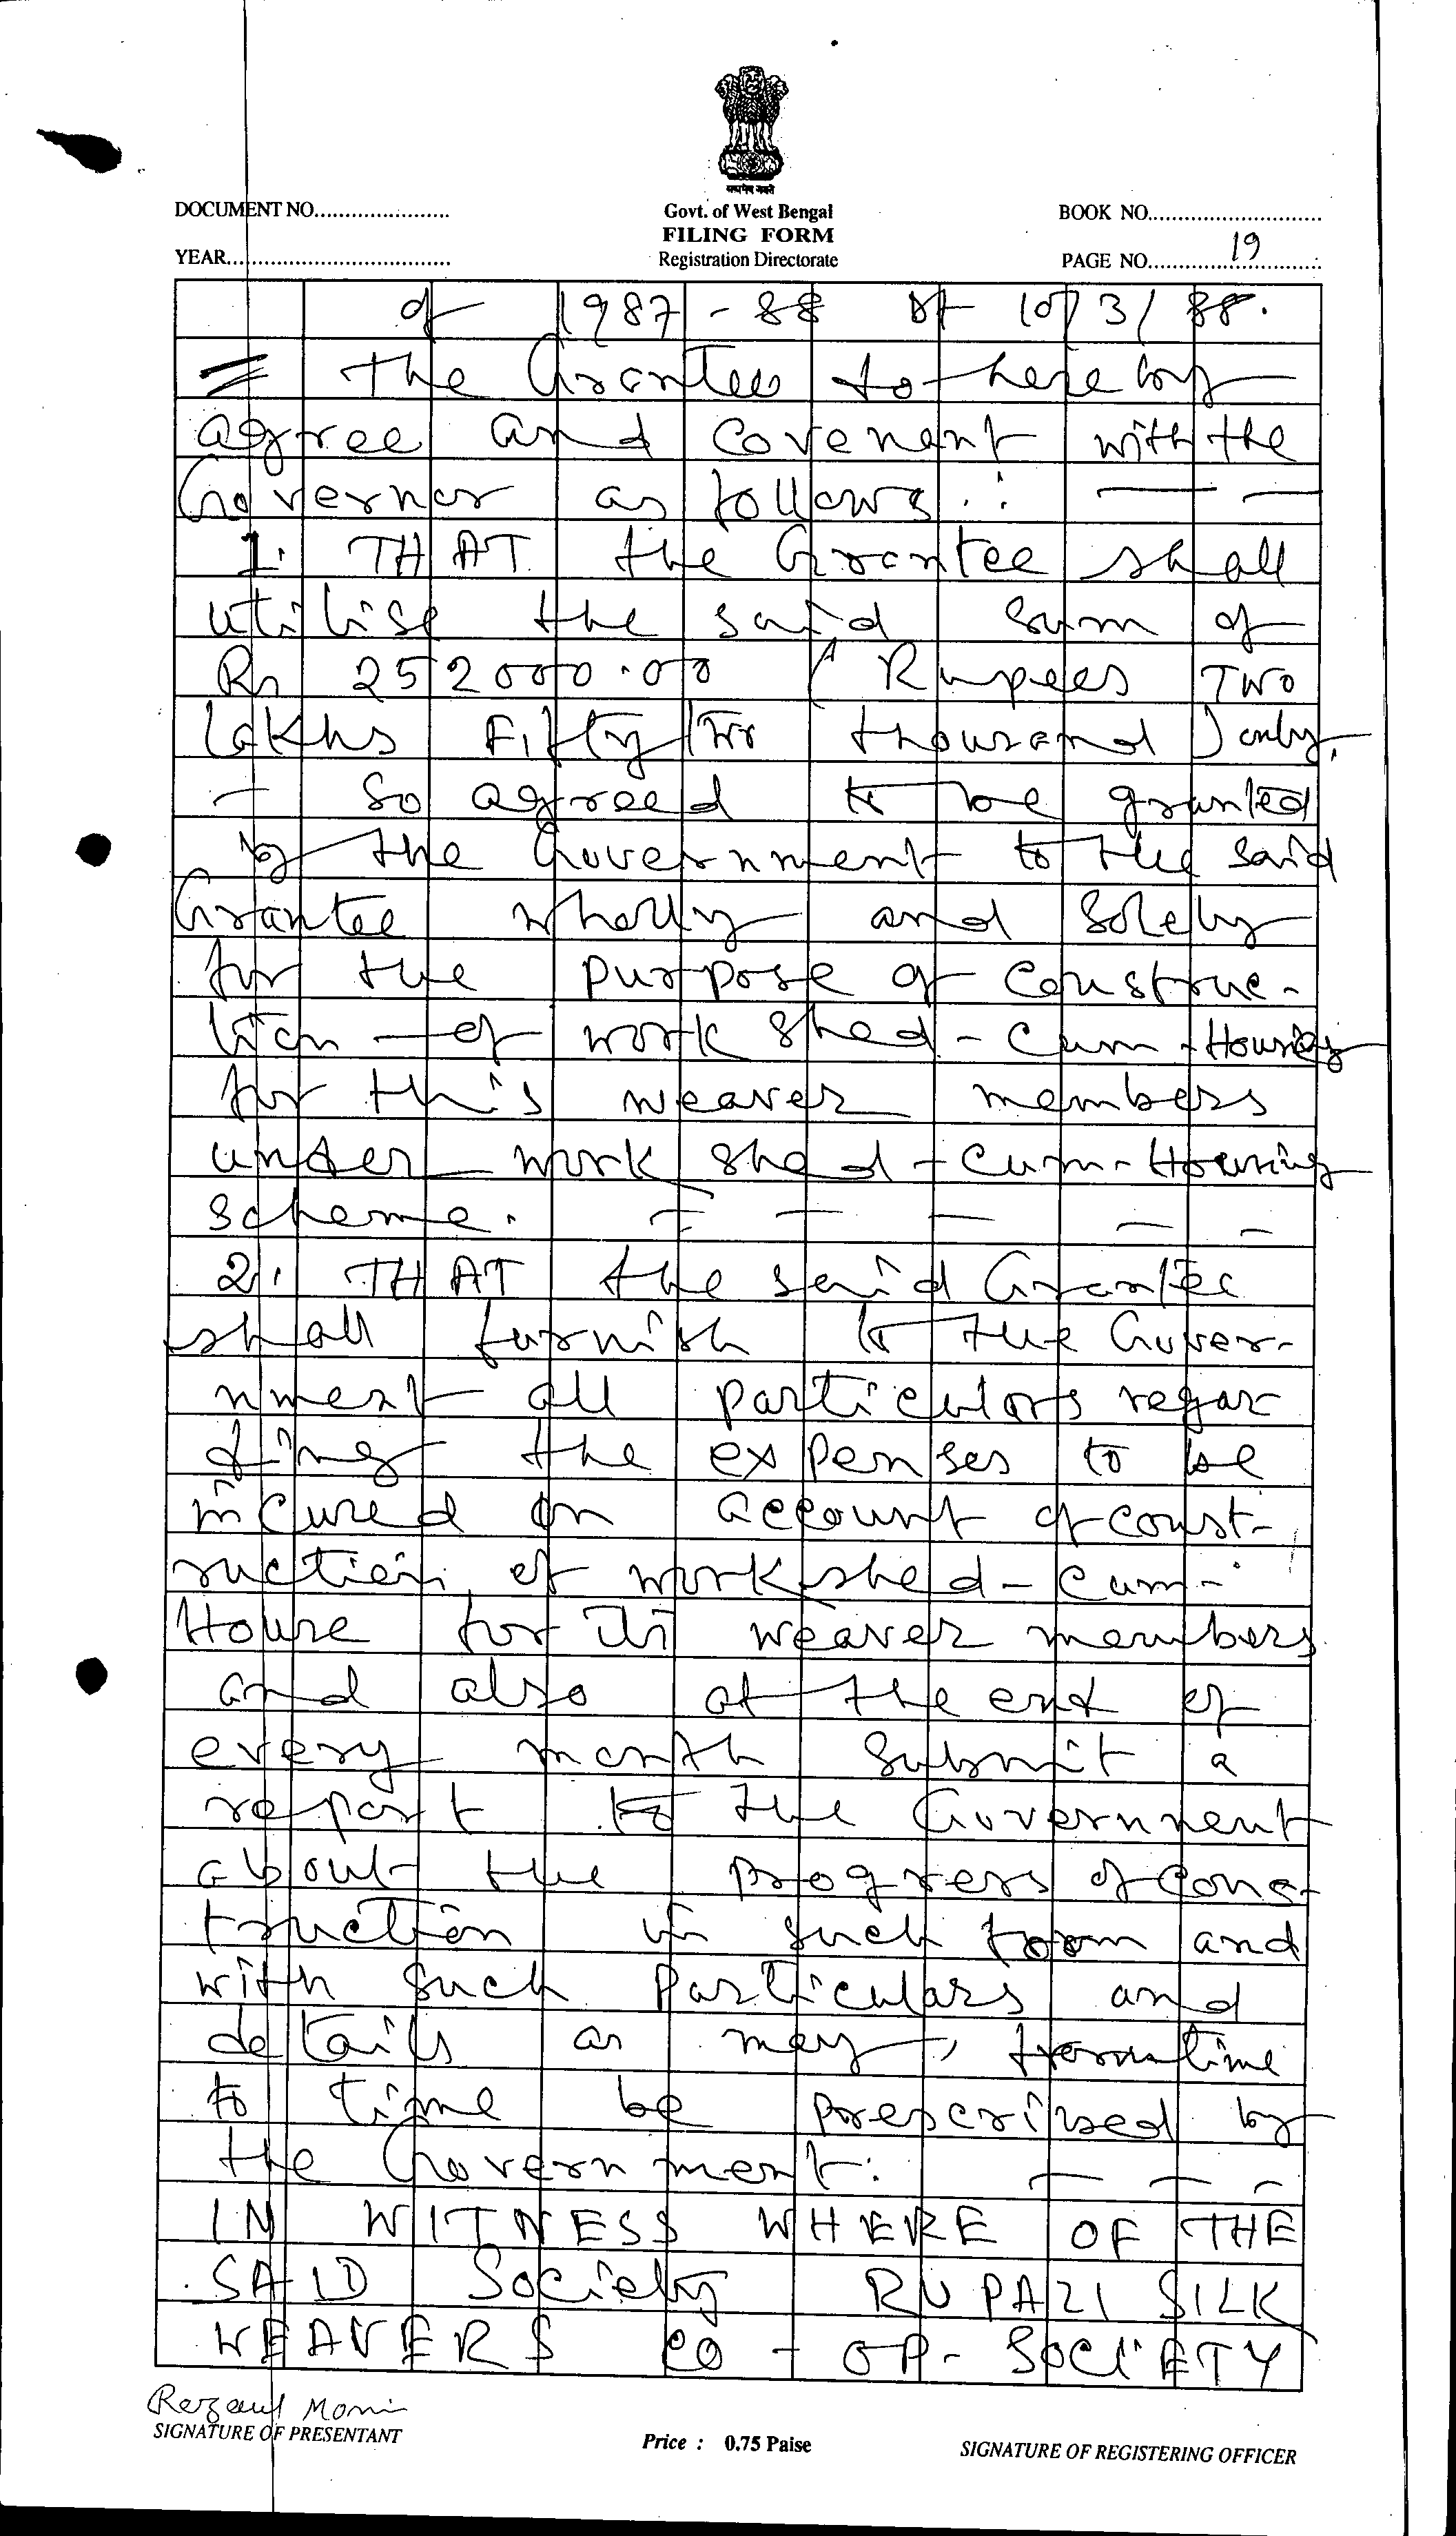 सत्यमेव जयते
DOCUMENT NO.......................
Govt. of West Bengal
BOOK NO.............................
FILING FORM
YEAR......................................
Registration Directorate
PAGE NO............19............
of 1987-88 dt 10/3/88.
= the Grantee do hereby
agree and covenant with the
Governor as follows: — —
1. THAT the Grantee shall
utilise the said sum of
Rs 252000.00 (Rupees Two
lakhs Fifty two thousand) only,
— so agreed to be granted
by the Government to the said
Grantee wholly and solely
for the purpose of construc-
tion — of work shed-cum-Housing
for this weaver members
under work shed-cum-Housing
scheme. = — — — —
2. THAT the said Grantee
shall furnish to the Gover-
nment all particulars regar
ding the expenses to be
incured on account of const-
ruction of workshed-cum-
House for its weaver members
and also at the end of
every month submit a
report to the Government
about the progress of cons-
truction in such form and
with such particulars and
details as may, from time
to time be prescribed by
the Government. — — —
IN WITNESS WHERE OF THE
SAID Society RUPAZI SILK
WEAVERS CO-OP- SOCIETY
Rezaul Momi
SIGNATURE OF PRESENTANT
Price : 0.75 Paise
SIGNATURE OF REGISTERING OFFICER